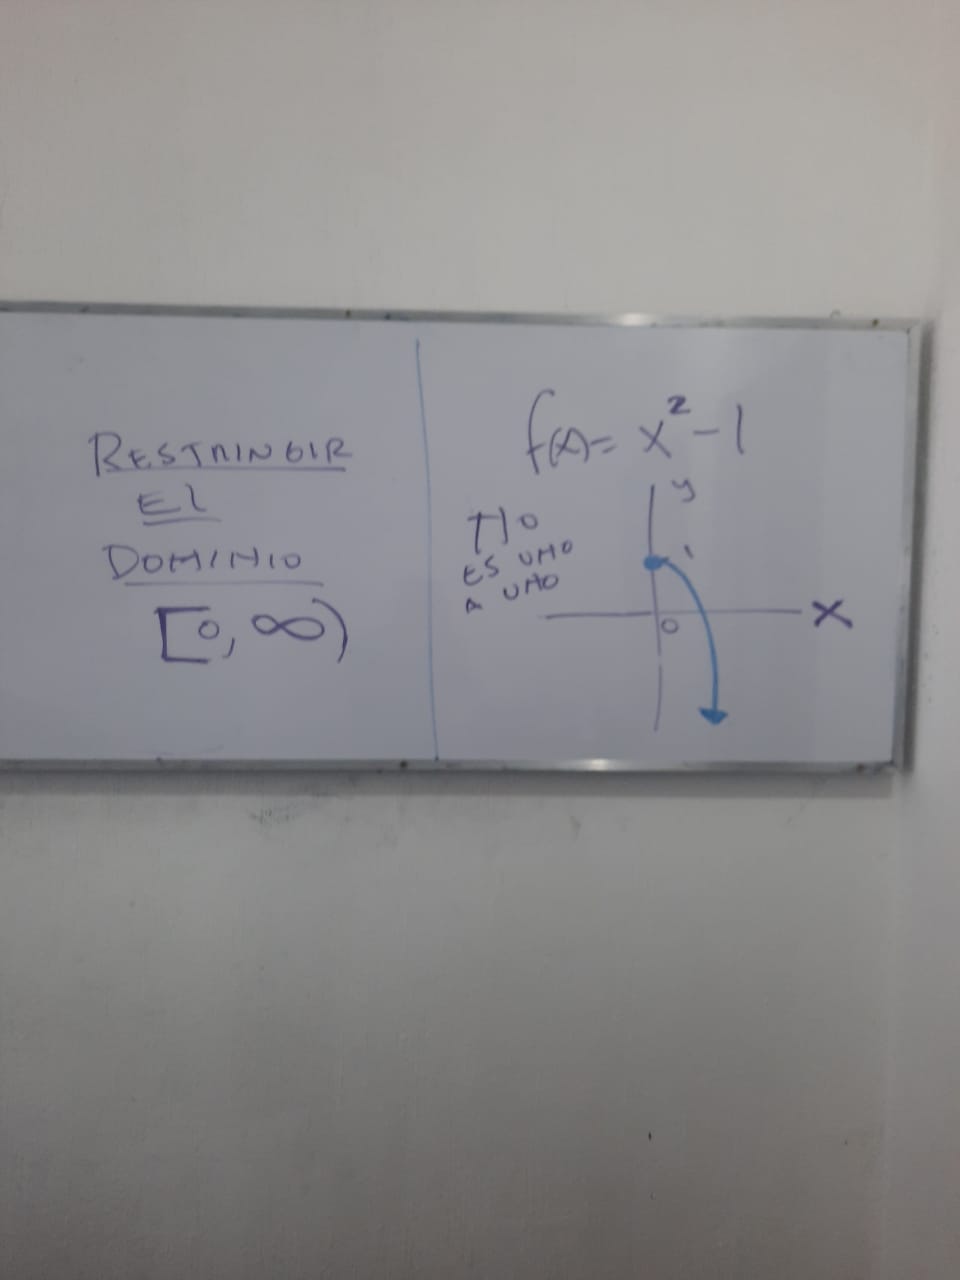 RESTRINGIR
El
DOMINIO
[0, ∞)
f(x)= x²-1
NO
ES UNO
A UNO
y
1
0
X